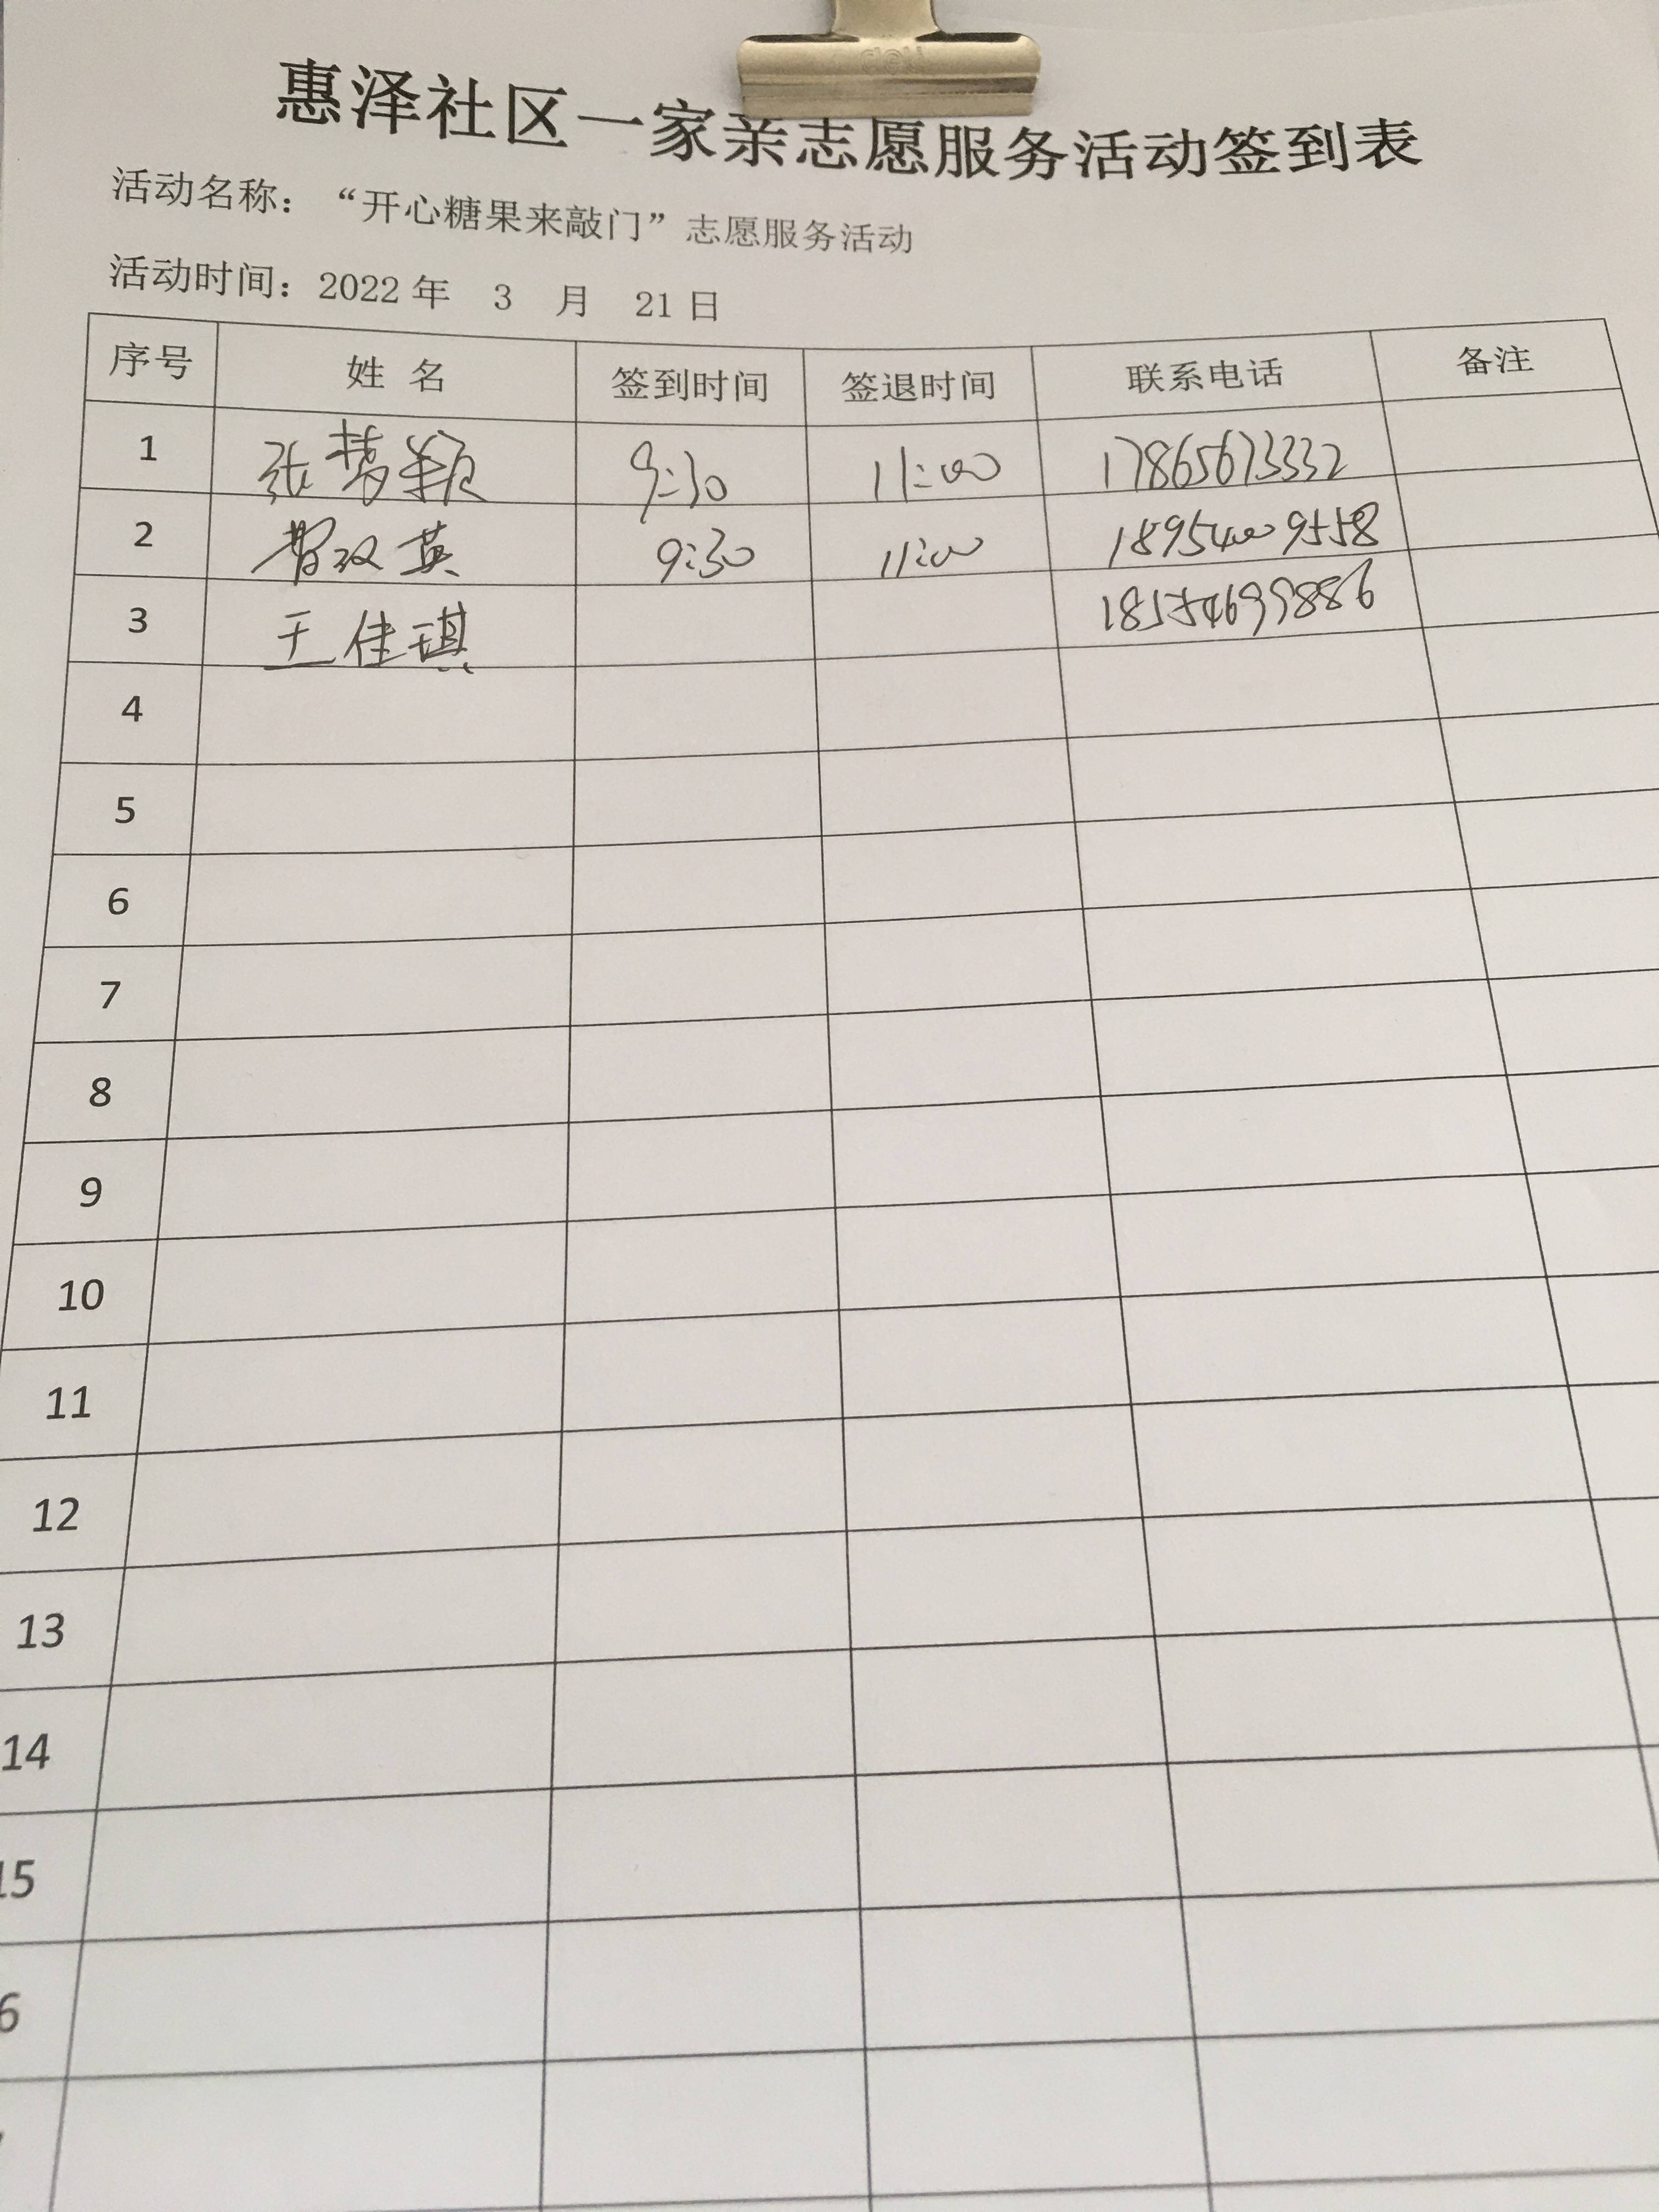 deli
惠泽社区一家亲志愿服务活动签到表
活动名称：“开心糖果来敲门”志愿服务活动
活动时间：2022 年 3 月 21 日
序号 姓 名 签到时间 签退时间 联系电话 备注
1 张梦颖 9:30 11:00 17865673332
2 曹双英 9:30 11:00 18954009558
3 王佳琪 18554699886
4
5
6
7
8
9
10
11
12
13
14
15
6